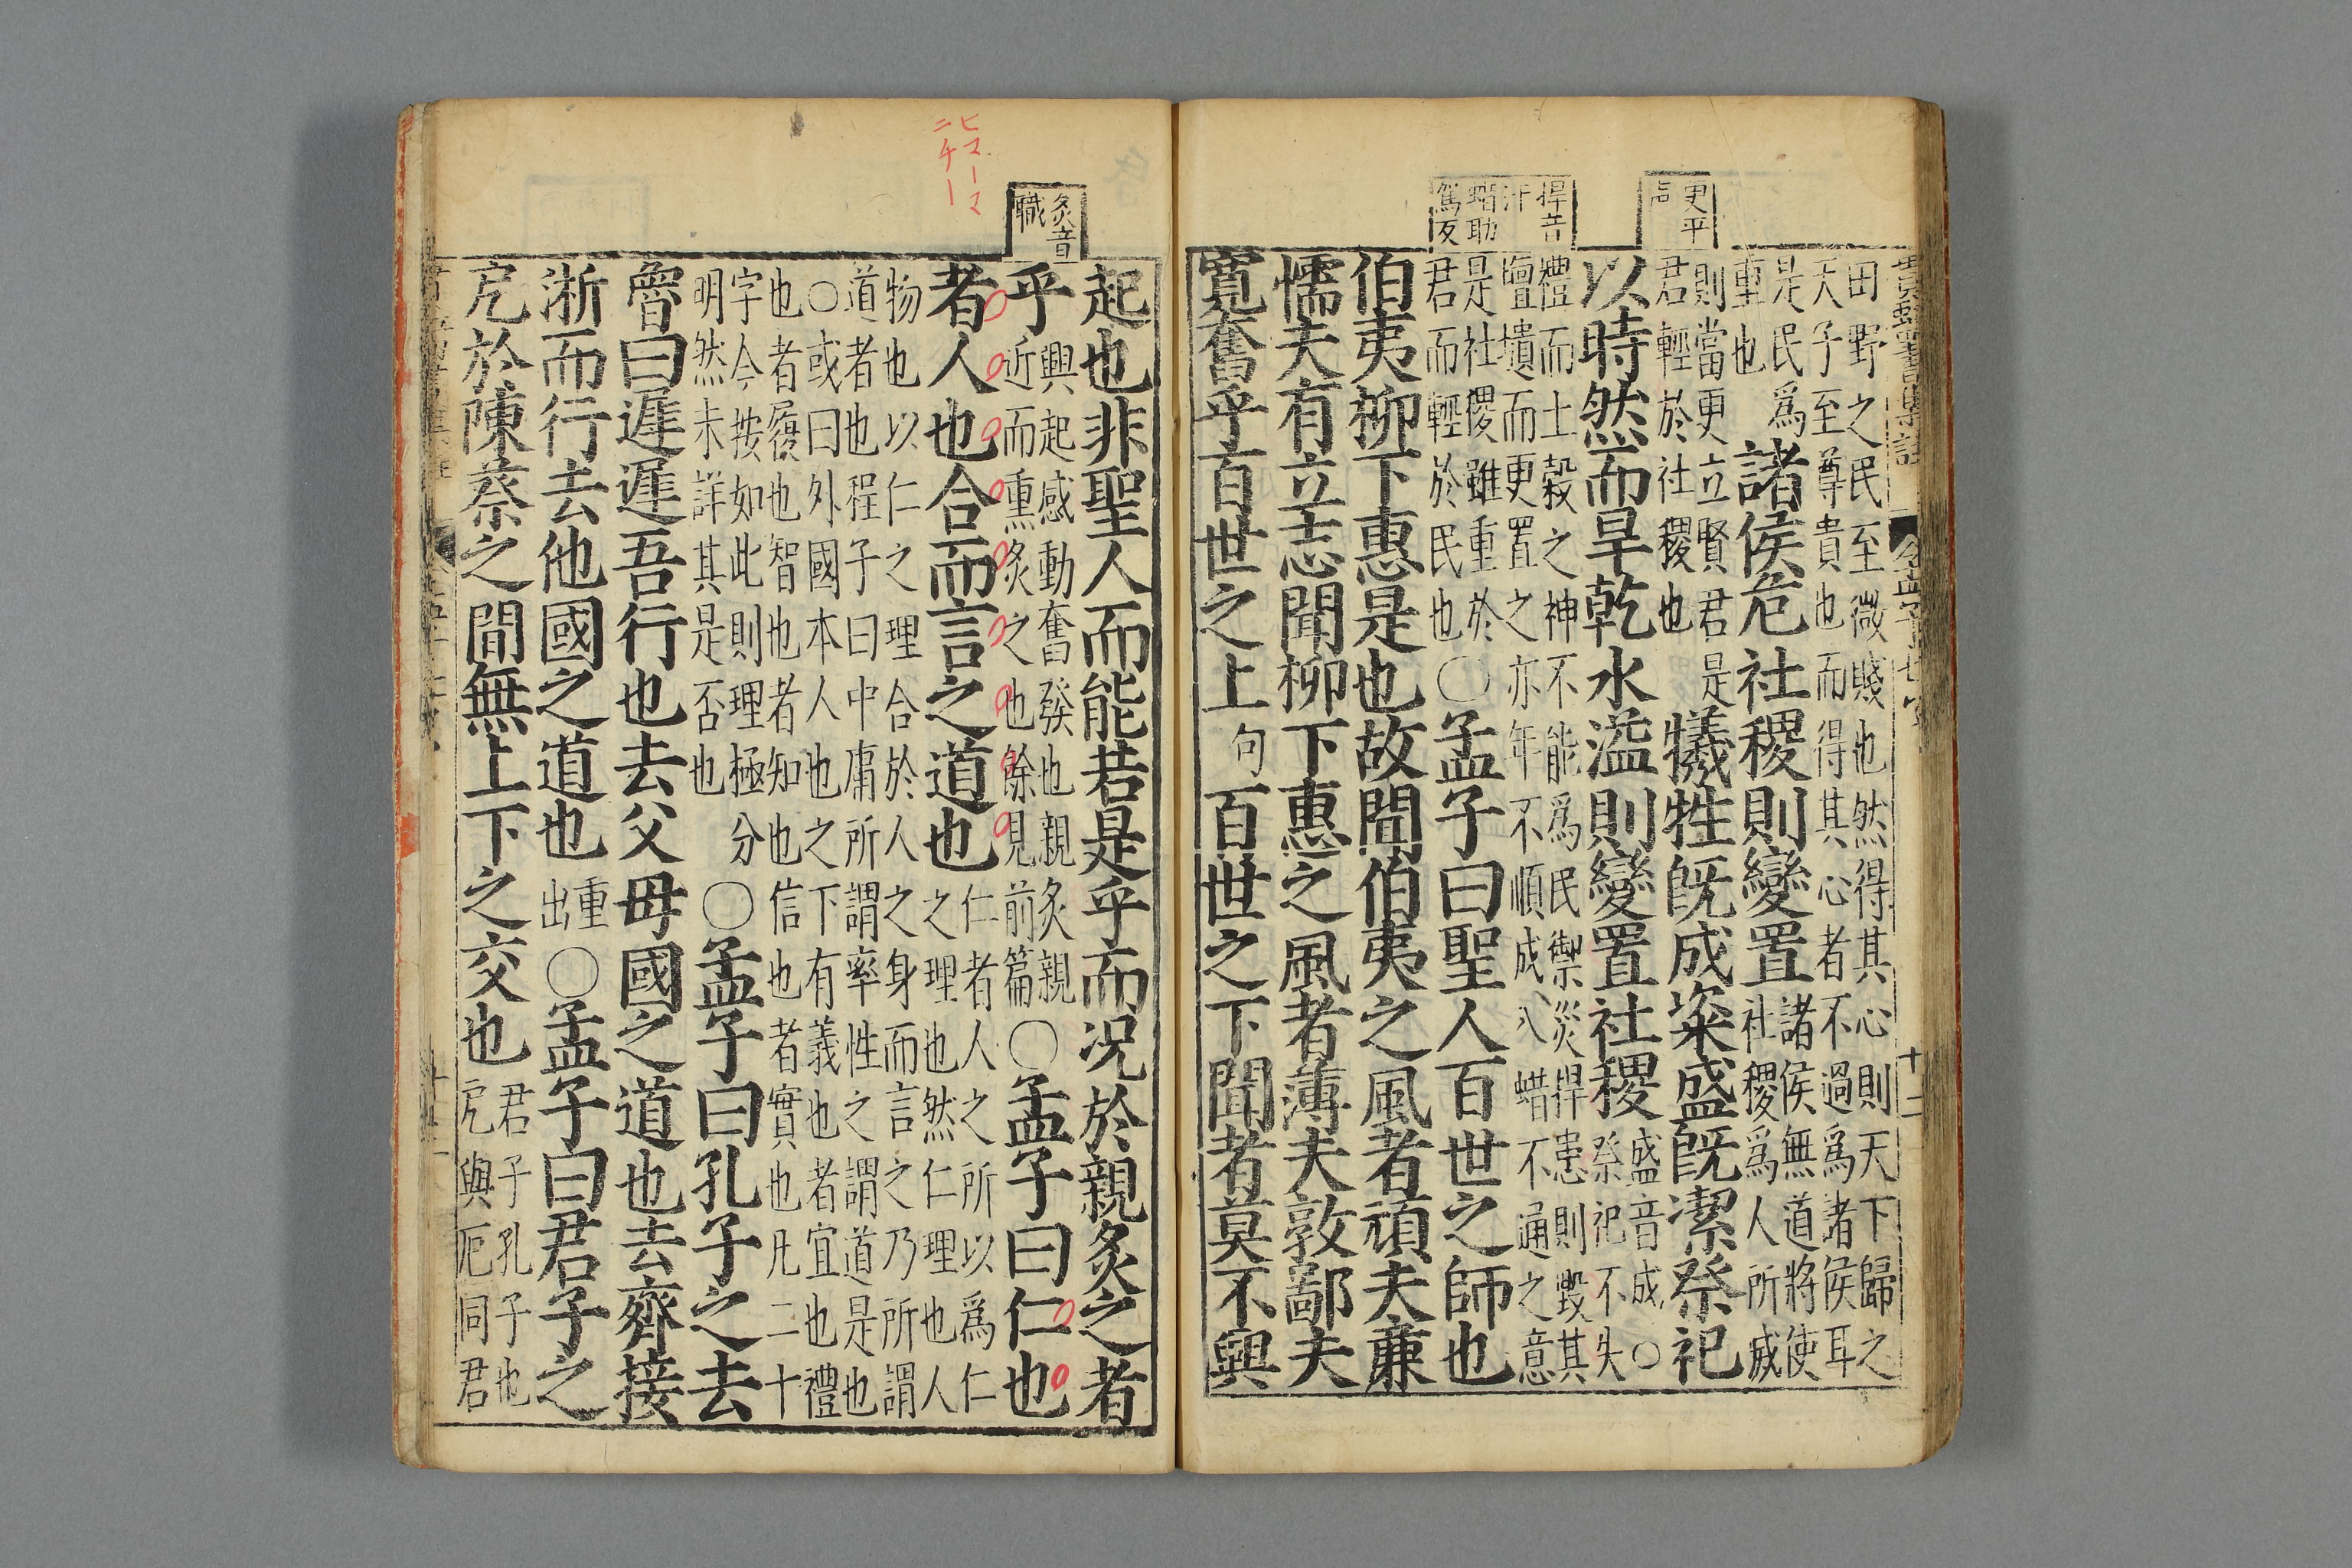 更平
声
捍音
汗
蜡助
駕反
田野之民至微賤也然得其心則天下歸之
天子至尊貴也而得其心者不過爲諸侯耳
是民爲
重也
諸侯危社稷則變置
諸侯無道將使
社稷爲人所滅
則當更立賢君是
君輕於社稷也
犧牲旣成粢盛旣潔祭祀
以時然而旱乾水溢則變置社稷
盛音成○
祭祀不失
禮而土穀之神不能爲民禦災捍患則毀其
壇壝而更置之亦年不順成八蜡不通之意
是社稷雖重於
君而輕於民也
○孟子曰聖人百世之師也
伯夷柳下惠是也故聞伯夷之風者頑夫廉
懦夫有立志聞柳下惠之風者薄夫敦鄙夫
寬奮乎百世之上
句
百世之下聞者莫不興
十二
炙音
職
ヒマーマ
ニチー
起也非聖人而能若是乎而况於親炙之者
乎
興起感動奮發也親炙親
近而熏炙之也餘見前篇
○孟子曰仁也
者人也合而言之道也
仁者人之所以爲仁
之理也然仁理也人
物也以仁之理合於人之身而言之乃所謂
道者也程子曰中庸所謂率性之謂道是也
○或曰外國本人也之下有義也者宜也禮
也者履也智也者知也信也者實也凡二十
字今按如此則理極分
明然未詳其是否也
○孟子曰孔子之去
魯曰遲遲吾行也去父母國之道也去齊接
淅而行去他國之道也
重
出
○孟子曰君子之
戹於陳蔡之間無上下之交也
君子孔子也
戹與厄同君